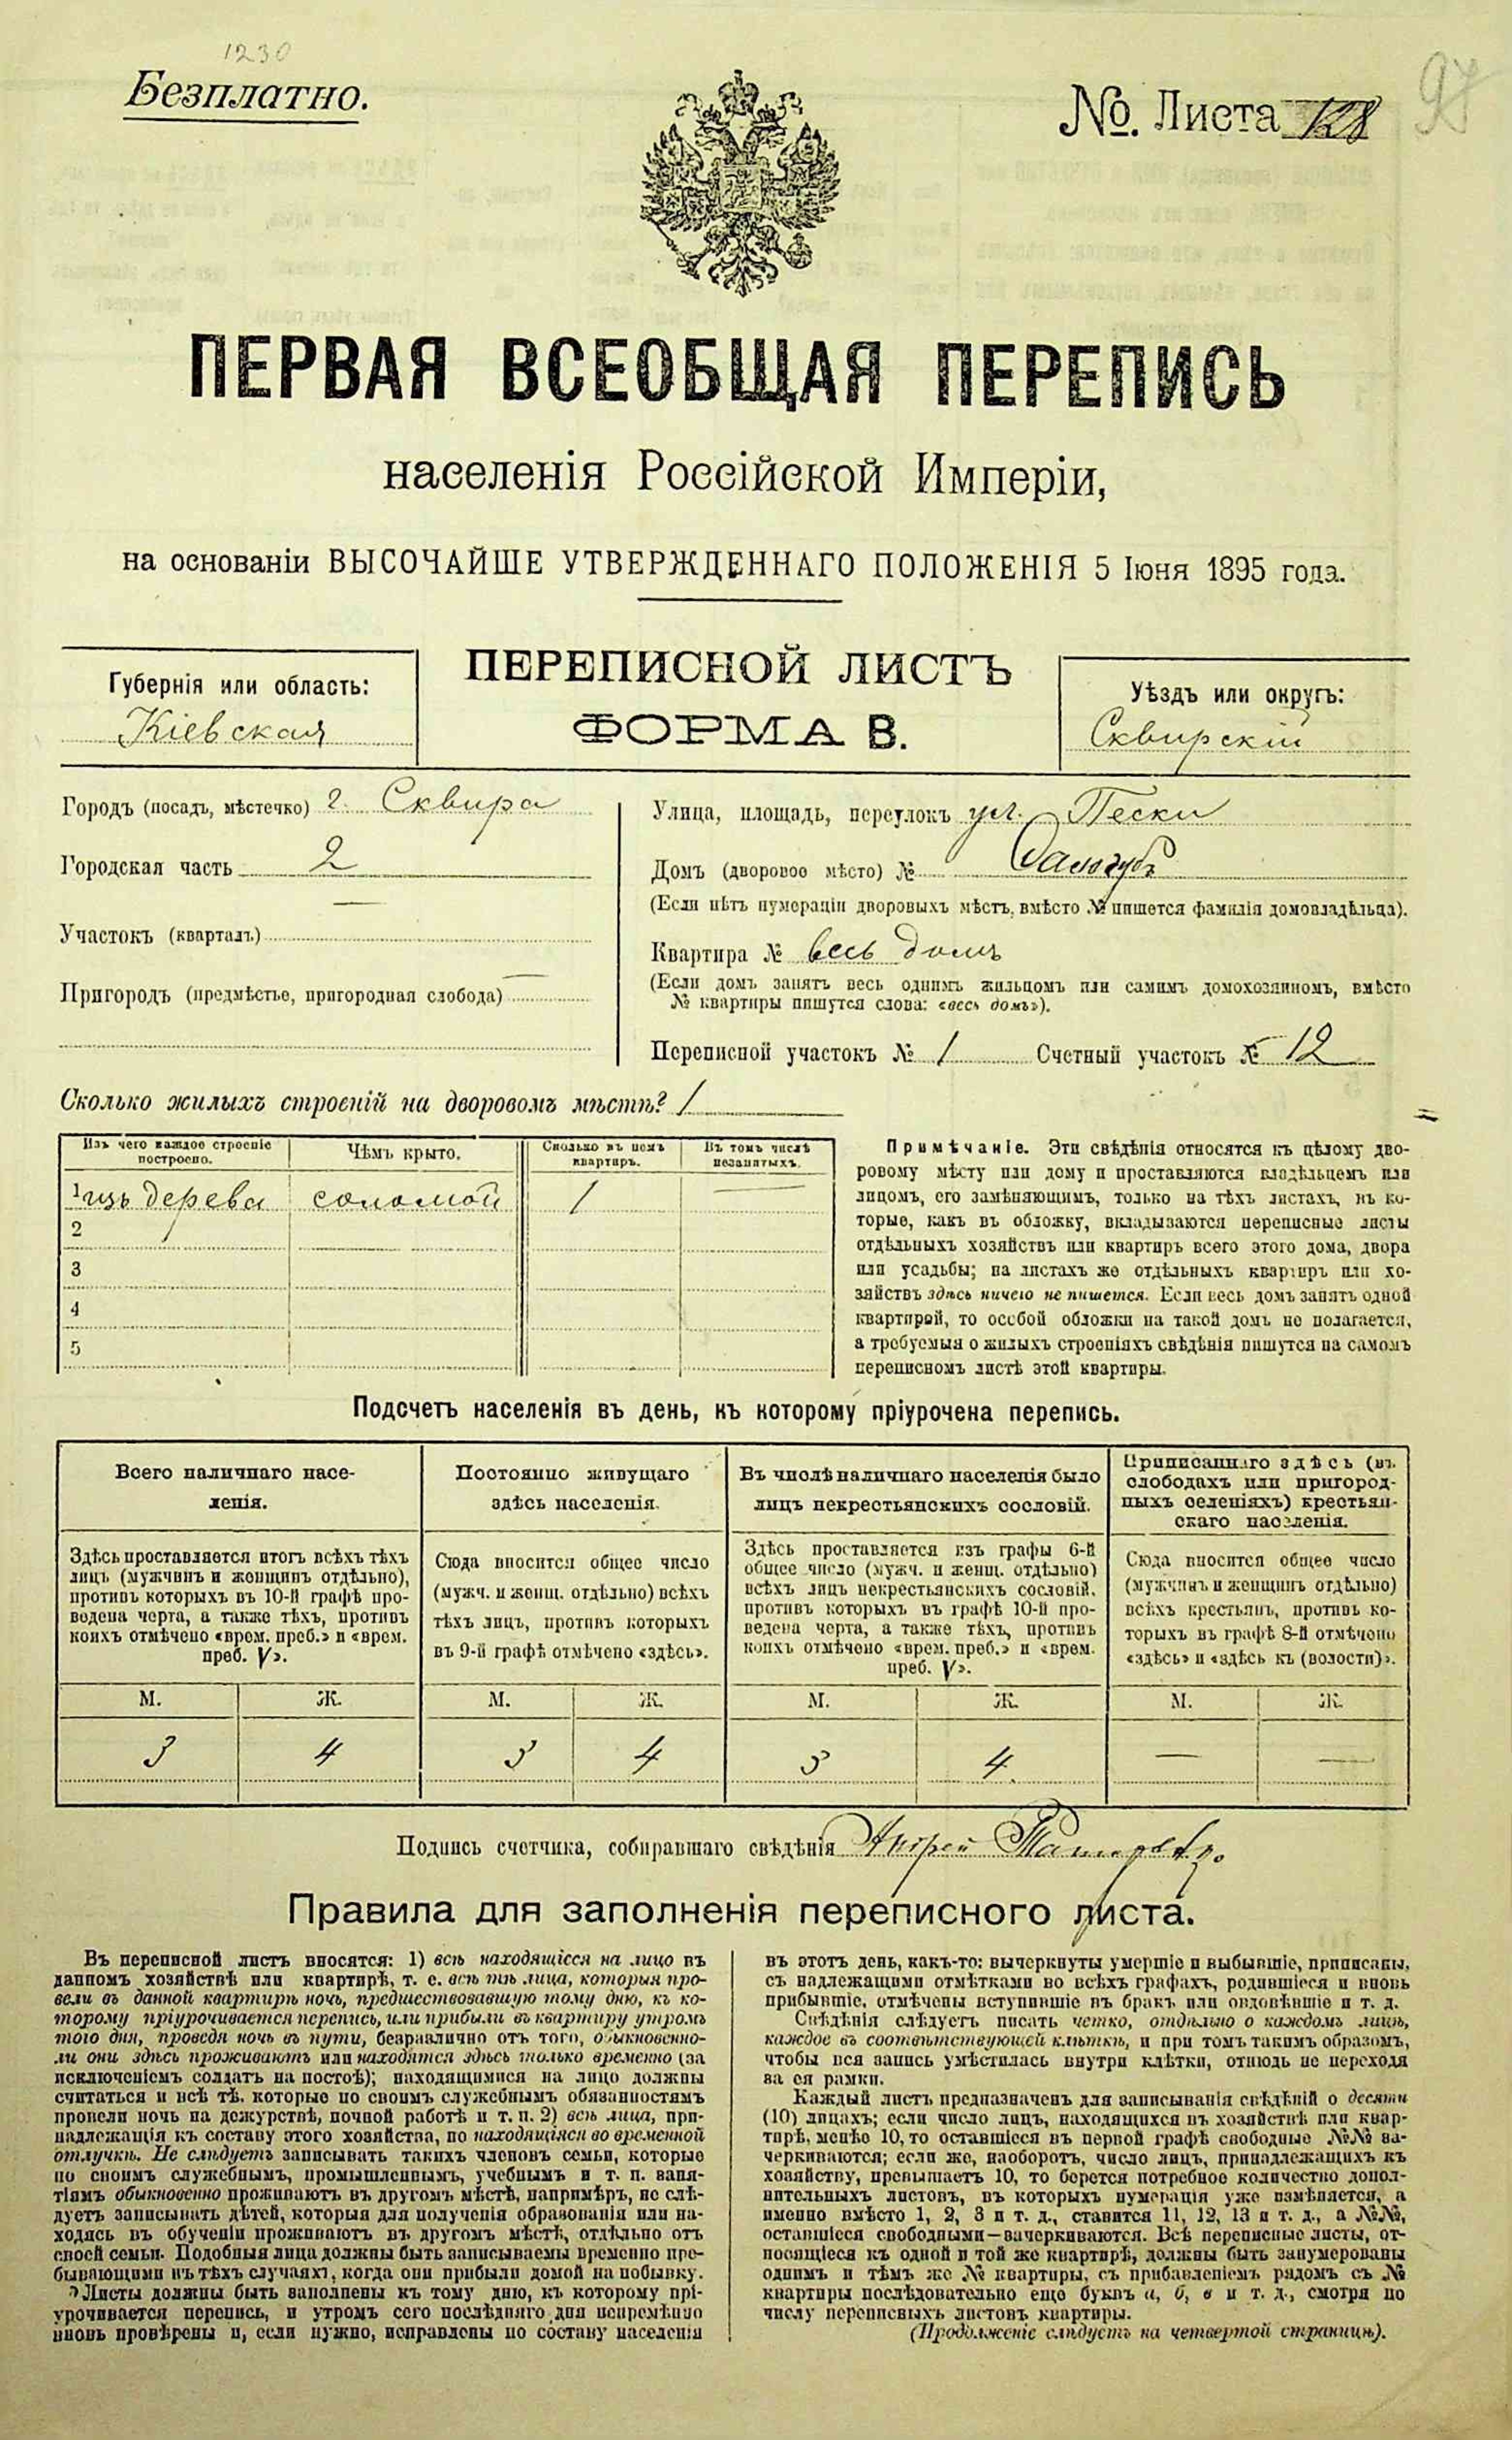 1230
Безплатно.
№. Листа 128
97
ПЕРВАЯ ВСЕОБЩАЯ ПЕРЕПИСЬ
населенія Россійской Имперіи,
на основаніи ВЫСОЧАЙШЕ УТВЕРЖДЕННАГО ПОЛОЖЕНІЯ 5 Іюня 1895 года.
ПЕРЕПИСНОЙ ЛИСТЪ
ФОРМА В.
Губернія или область:
Кіевская
Уѣздъ или округъ:
Сквирскій
Городъ (посадъ, мѣстечко) г. Сквира
Городская часть 2
Участокъ (кварталъ) —
Пригородъ (предмѣстье, пригородная слобода) —
Улица, площадь, переулокъ ул. Пески
Домъ (дворовое мѣсто) №
(Если нѣтъ нумераціи дворовыхъ мѣстъ, вмѣсто № пишется фамилія домовладѣльца).
Квартира № весь домъ
(Если домъ занятъ весь однимъ жильцомъ или самимъ домохозяиномъ, вмѣсто
№ квартиры пишутся слова: «весь домъ»).
Переписной участокъ № 1 Счетный участокъ № 12
Сколько жилыхъ строеній на дворовомъ мѣстѣ? 1
Изъ чего каждое строеніе
построено.
Чѣмъ крыто.
Сколько въ немъ
квартиръ.
Въ томъ числѣ
незанятыхъ.
1 изъ дерева соломой 1 —
2
3
4
5
Примѣчаніе. Эти свѣдѣнія относятся къ цѣлому дво-
ровому мѣсту или дому и проставляются владѣльцемъ или
лицомъ, его замѣняющимъ, только на тѣхъ листахъ, въ ко-
торые, какъ въ обложку, вкладываются переписные листы
отдѣльныхъ хозяйствъ или квартиръ всего этого дома, двора
или усадьбы; на листахъ же отдѣльныхъ квартиръ или хо-
зяйствъ здѣсь ничего не пишется. Если весь домъ занятъ одной
квартирой, то особой обложки на такой домъ не полагается,
а требуемыя о жилыхъ строеніяхъ свѣдѣнія пишутся на самомъ
переписномъ листѣ этой квартиры.
Подсчетъ населенія въ день, къ которому пріурочена перепись.
Всего наличнаго насе-
ленія.
Постоянно живущаго
здѣсь населенія.
Въ числѣ наличнаго населенія было
лицъ некрестьянскихъ сословій.
Приписаннаго здѣсь (въ
слободахъ или пригород-
ныхъ селеніяхъ) крестьян-
скаго населенія.
Здѣсь проставляется итогъ всѣхъ тѣхъ
лицъ (мужчинъ и женщинъ отдѣльно),
противъ которыхъ въ 10-й графѣ про-
ведена черта, а также тѣхъ, противъ
коихъ отмѣчено «врем. преб.» и «врем.
преб. V».
Сюда вносится общее число
(мужч. и женщ. отдѣльно) всѣхъ
тѣхъ лицъ, противъ которыхъ
въ 9-й графѣ отмѣчено «здѣсь».
Здѣсь проставляется изъ графы 6-й
общее число (мужч. и женщ. отдѣльно)
всѣхъ лицъ некрестьянскихъ сословій,
противъ которыхъ въ графѣ 10-й про-
ведена черта, а также тѣхъ, противъ
коихъ отмѣчено «врем. преб.» и «врем.
преб. V».
Сюда вносится общее число
(мужчинъ и женщинъ отдѣльно)
всѣхъ крестьянъ, противъ ко-
торыхъ въ графѣ 8-й отмѣчено
«здѣсь» и «здѣсь къ (волости)».
М. Ж. М. Ж. М. Ж. М. Ж.
3 4 3 4 3 4 — —
Подпись счетчика, собиравшаго свѣдѣнія Андрей
Правила для заполненія переписного листа.
Въ переписной листъ вносятся: 1) всѣ находящіеся на лицо въ
данномъ хозяйствѣ или квартирѣ, т. е. всѣ тѣ лица, которыя про-
вели въ данной квартирѣ ночь, предшествовавшую тому дню, къ ко-
торому пріурочивается перепись, или прибыли въ квартиру утромъ
того дня, проведя ночь въ пути, безразлично отъ того, обыкновенно-
ли они здѣсь проживаютъ или находятся здѣсь только временно (за
исключеніемъ солдатъ на постоѣ); находящимися на лицо должны
считаться и всѣ тѣ, которые по своимъ служебнымъ обязанностямъ
провели ночь на дежурствѣ, ночной работѣ и т. п. 2) всѣ лица, при-
надлежащія къ составу этого хозяйства, но находящіяся во временной
отлучкѣ. Не слѣдуетъ записывать такихъ членовъ семьи, которые
по своимъ служебнымъ, промышленнымъ, учебнымъ и т. п. заня-
тіямъ обыкновенно проживаютъ въ другомъ мѣстѣ, напримѣръ, не слѣ-
дуетъ записывать дѣтей, которыя для полученія образованія или на-
ходясь въ обученіи проживаютъ въ другомъ мѣстѣ, отдѣльно отъ
своей семьи. Подобныя лица должны быть записываемы временно пре-
бывающими въ тѣхъ случаяхъ, когда они прибыли домой на побывку.
Листы должны быть заполнены къ тому дню, къ которому прі-
урочивается перепись, и утромъ сего послѣдняго дня непремѣнно
вновь провѣрены и, если нужно, исправлены по составу населенія
въ этотъ день, какъ-то: вычеркнуты умершіе и выбывшіе, приписаны,
съ надлежащими отмѣтками во всѣхъ графахъ, родившіеся и вновь
прибывшіе, отмѣчены вступившіе въ бракъ или овдовѣвшіе и т. д.
Свѣдѣнія слѣдуетъ писать четко, отдѣльно о каждомъ лицѣ,
каждое въ соотвѣтствующей клѣткѣ, и при томъ такимъ образомъ,
чтобы вся запись умѣстилась внутри клѣтки, отнюдь не переходя
за ея рамки.
Каждый листъ предназначенъ для записыванія свѣдѣній о десяти
(10) лицахъ; если число лицъ, находящихся въ хозяйствѣ или квар-
тирѣ, менѣе 10, то оставшіеся въ первой графѣ свободные №№ за-
черкиваются; если же, наоборотъ, число лицъ, принадлежащихъ къ
хозяйству, превышаетъ 10, то берется потребное количество допол-
нительныхъ листовъ, въ которыхъ нумерація уже измѣняется, а
именно вмѣсто 1, 2, 3 и т. д., ставится 11, 12, 13 и т. д., а №№,
оставшіеся свободными—зачеркиваются. Всѣ переписные листы, от-
носящіеся къ одной и той же квартирѣ, должны быть занумерованы
однимъ и тѣмъ же № квартиры, съ прибавленіемъ рядомъ съ №
квартиры послѣдовательно еще буквъ а, б, в и т. д., смотря по
числу переписныхъ листовъ квартиры.
(Продолженіе слѣдуетъ на четвертой страницѣ).